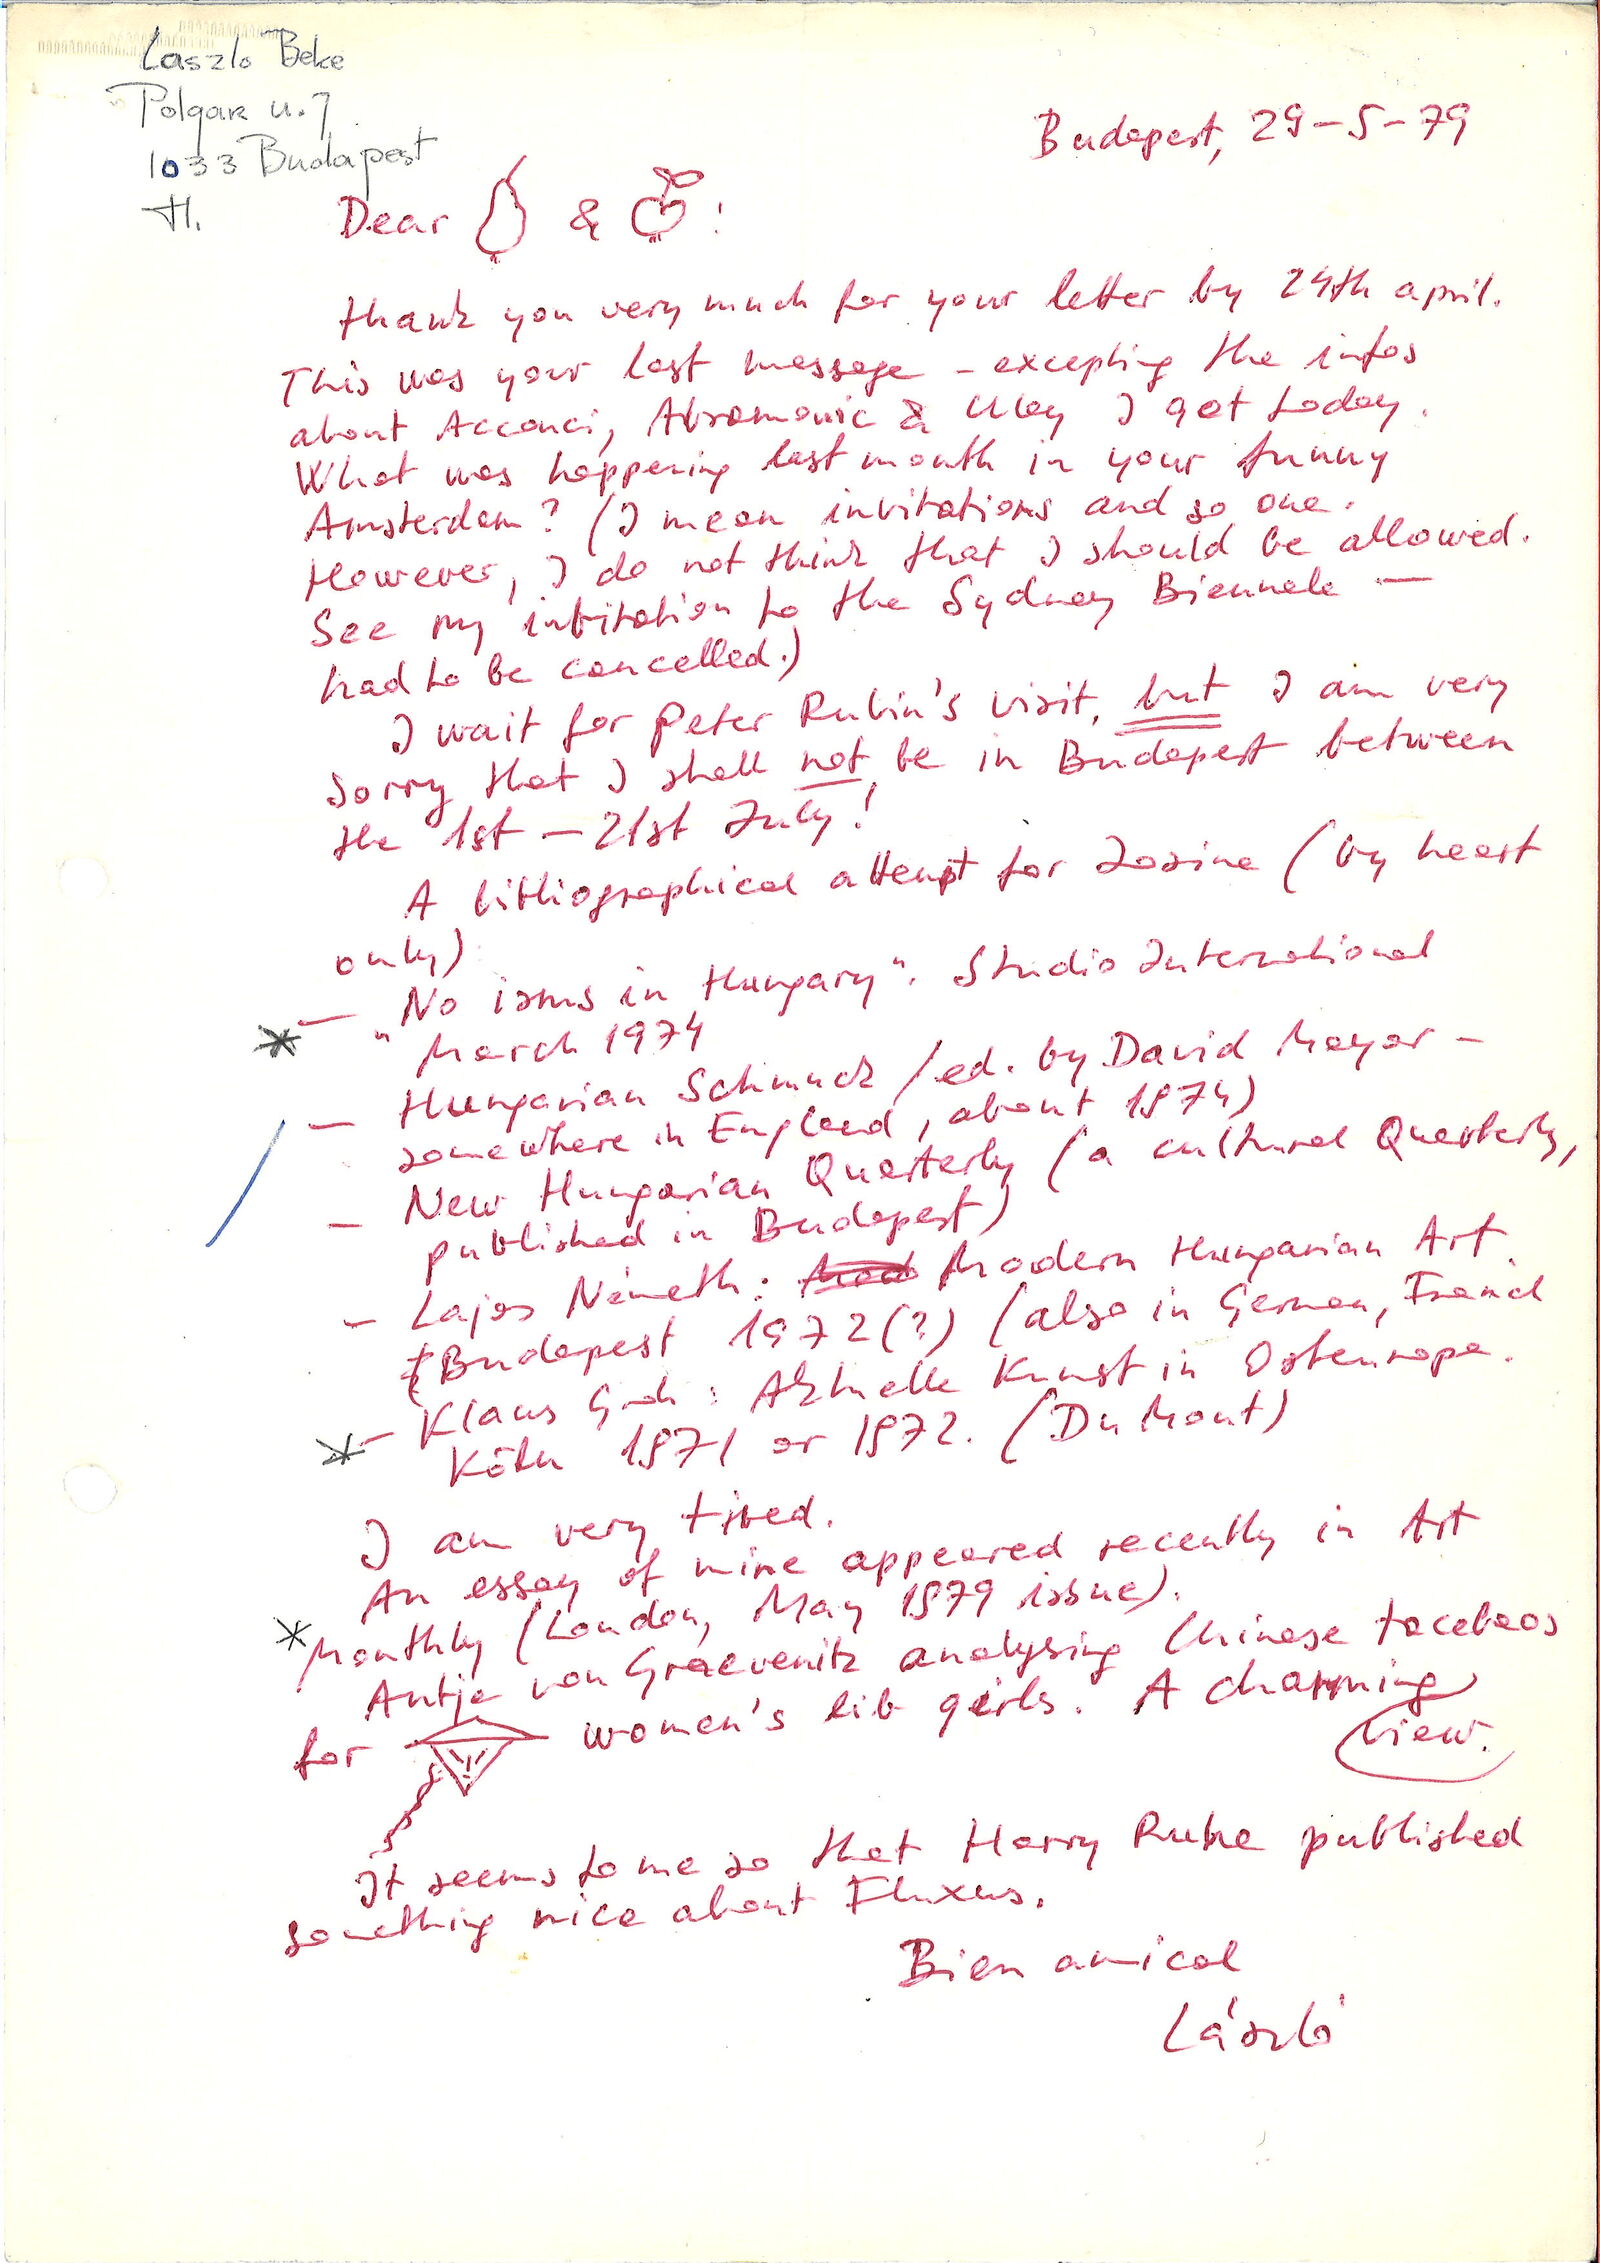 Laszlo Beke
Polgar u. 7
1033 Budapest
H.
Budapest, 29-5-79
Dear & !
thank you very much for your letter by 24th april.
This was your last message - excepting the infos
about Acconci, Abramovic & Ulay I got today.
What was happening last month in your funny
Amsterdam? (I mean invitations and so one.
However, I do not think that I should be allowed.
See my invitation to the Sydney Biennale —
had to be cancelled.)
I wait for Peter Rubin's visit, but I am very
sorry that I shall not be in Budapest between
the 1st - 21st July!
A bibliographical attempt for Josine (by heart
only)
* — "No isms in Hungary". Studio International
March 1974
— Hungarian Schmuck /ed. by David Mayor -
somewhere in England, about 1974)
— New Hungarian Quarterly (a cultural Quarterly,
published in Budapest)
- Lajos Németh: Modern Hungarian Art.
Budapest 1972(?) (also in German, French
* - Klaus Groh: Aktuelle Kunst in Osteuropa.
Köln 1971 or 1972. (DuMont)
I am very tired.
An essay of mine appeared recently in Art
* Monthly (London, May 1979 issue).
Antje von Graevenitz analysing Chinese tacebaos
for women's lib girls. A charming
view.
It seems to me so that Harry Ruhe published
something nice about Fluxus.
Bien amical
László